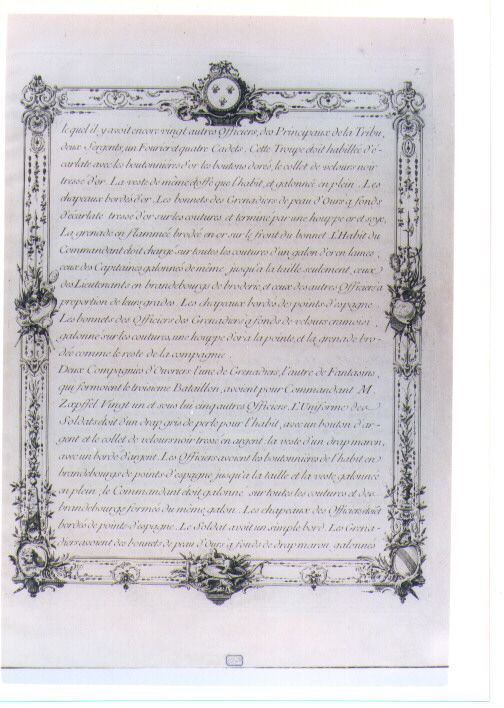 lequel il y avoit encore vingt autres Officiers, des Principaux de la Tribu,
deux Sergents, un Fourier et quatre Cadets. Cette Troupe etoit habillée d'é-
carlate avec les boutonnieres d'or les boutons dorés, le collet de velours noir
tressé d'or. La veste de même étoffe que l'habit, et galonnée en plein. Les
chapeaux bordés d'or. Les bonnets des Grenadiers de peau d'Ours a fonds
d'écarlate tressé d'or sur les coutures et terminé par une houppe or et soye.
La grenade en flammée brodée en or sur le front du bonnet. L'Habit du
Commandant etoit chargé sur toutes les coutures d'un galon d'or en lames;
ceux des Capitaines galonnés de même jusqu'a la taille seulement, ceux
des Lieutenants en brandebourgs de broderie, et ceux des autres Officiers a
proportion de leurs grades. Les chapeaux bordés de points d'espagne.
Les bonnets des Officiers des Grenadiers a fonds de velours cramoisi,
galonné sur les coutures, une houppe d'or a la pointe, et la grenade bro-
dée comme le reste de la compagnie.
Deux Compagnies d'Ouvriers l'une de Grenadiers, l'autre de Fantasins,
qui formoient le troisieme Bataillon, avoient pour Commandant M.
Zapffel Vingt un et sous lui cinq autres Officiers. L'Uniforme des
Soldats etoit d'un drap gris de perle pour l'habit, avec un bouton d'ar-
gent et le collet de velours noir tressé en argent. la veste d'un drap maron,
avec un bord d'argent. Les Officiers avoient les boutonnieres de l'habit en
brandebourgs de points d'espagne jusqu'a la taille et la veste galonnée
en plein, le Commandant etoit galonné sur toutes les coutures et des
brandebourgs formés du même galon. Les chapeaux des Officiers etoit
bordés de points d'espagne. Le Soldat avoit un simple bord. Les Grena-
diers avoient des bonnets de peau d'Ours a fonds de drap maron, galonnés